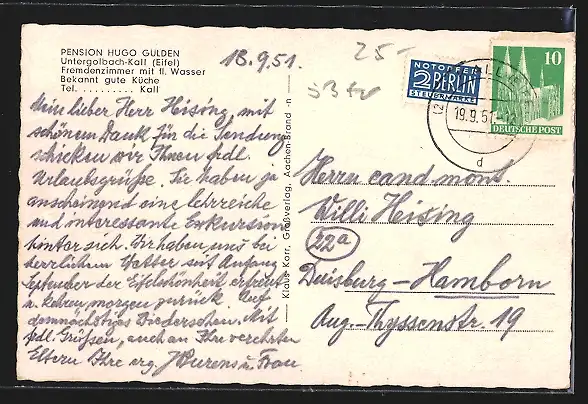 PENSION HUGO GULDEN
Untergolbach-Kall (Eifel)
Fremdenzimmer mit fl. Wasser
Bekannt gute Küche
Tel. ......... Kall
18.9.51.
25-
Mein lieber Herr Heising, mit
schönem Dank für die Sendung
schicken wir Ihnen frdl.
Urlaubsgrüße. Sie haben ja
anscheinend eine lehrreiche
und interessante Exkursion
hinter sich. Wir haben uns bei
herrlichem Wetter seit Anfang
September der Eifelschönheit erfreut
u. kehren morgen zurück. Auf
demnächstiges Wiedersehen. Mit
frdl. Grüßen, auch an Ihre verehrten
Eltern Ihre erg. u. Frau
Klaus Korr, Großverlag, Aachen-Brand -n-
NOTOPFER
2 BERLIN
STEUERMARKE
10
DEUTSCHE POST
19.9.51
d
Herrn cand. mont.
Willi Heising
22a
Duisburg-Hamborn
Aug.-Thyssenstr. 19